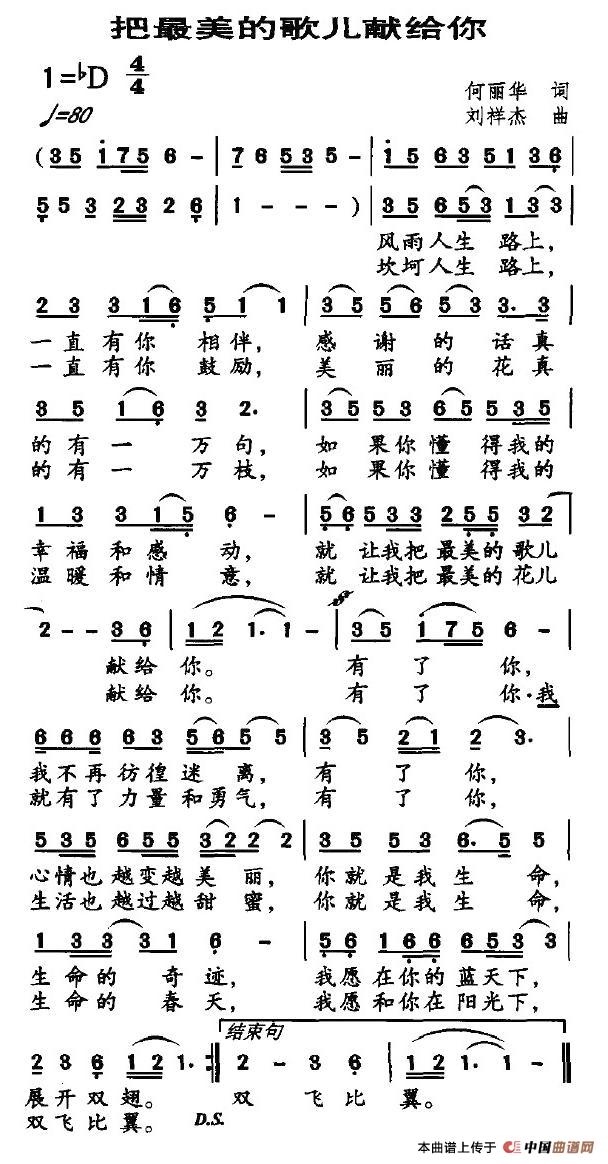 把最美的歌儿献给你
1=♭D 4/4
♩=80
何丽华 词
刘祥杰 曲
( 3 5 1 7 5 6 - | 7 6 5 3 5 - | 1 5 6 3 5 1 3 6 |
5 5 3 2 3 2 6 | 1 - - - ) | 3 5 6 5 3 1 3 3 |
风雨人生 路上，
坎坷人生 路上，
2 3 3 1 6 5 1 1 | 3 5 5 6 5 3 3 . 3 |
一直有你 相伴， 感谢的话真
一直有你 鼓励， 美丽的花真
3 5 1 6 3 2 . | 3 5 5 3 6 5 5 3 5 |
的有一 万句， 如果你懂 得我的
的有一 万枝， 如果你懂 得我的
1 3 3 1 5 6 - | 5 6 5 3 3 2 5 5 3 2 |
幸福和感 动， 就让我把最美的歌儿
温暖和情 意， 就让我把最美的花儿
2 - - 3 6 | 1 2 1 . 1 - | 3 5 1 7 5 6 - |
献给 你。 有了 你，
献给 你。 有了 你·我
6 6 6 6 3 5 6 5 5 | 3 5 2 1 2 3 . |
我不再彷徨迷 离， 有 了 你，
就有了力量和勇气， 有 了 你，
5 3 5 6 5 5 3 2 2 2 | 3 5 5 3 6 . 5 5 |
心情也越变越美 丽， 你就是我生 命，
生活也越过越甜 蜜， 你就是我生 命，
1 3 3 3 1 6 - | 5 6 1 6 6 6 5 3 3 |
生命的 奇迹， 我愿在你的蓝天下，
生命的 春天， 我愿和你在阳光下，
结束句
2 3 6 1 2 1 . :‖ 2 - 3 6 | 1 2 1 . 1 - ‖
展开双翅。 双 飞比 翼。
双飞比翼。 D.S.
本曲谱上传于 中国曲谱网